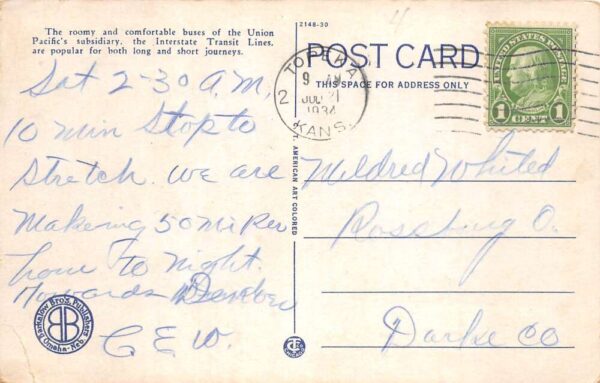 The roomy and comfortable buses of the Union
Pacific's subsidiary, the Interstate Transit Lines,
are popular for both long and short journeys.
Sat 2-30 A.M,
10 Min Stop to
Stretch. We are
Makeing 50 Mi Per
hour to Night.
Towards Denver
C.E.W.
Barkalow Bro's. Publishers
Omaha-Neb.
2148-30
POST CARD
THIS SPACE FOR ADDRESS ONLY
TOPEKA
9 AM
2
JUL 21
1934
KANS.
UNITED STATES POSTAGE
1 CENT 1
C.T. AMERICAN ART COLORED
Mildred Whited
Rossburg O.
Darke Co
4